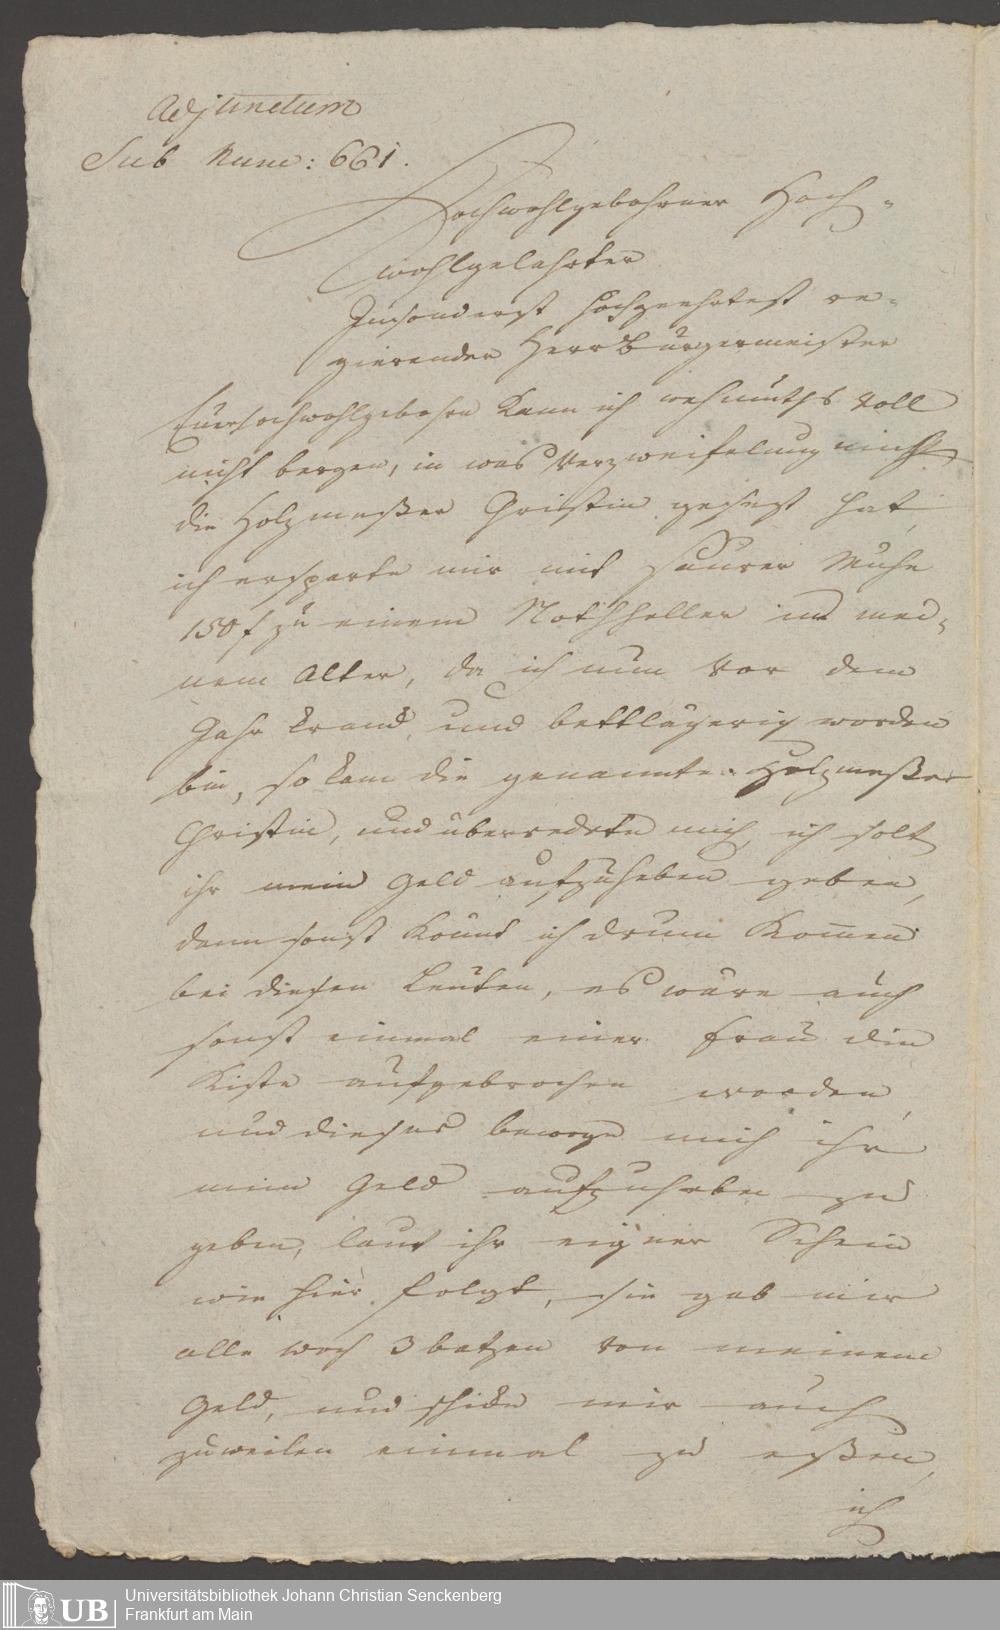 Adjunctum
Sub Num: 661.
Hochwohlgebohrner Hoch-
wohlgelahrter
Insonderst hochgeehrtest re-
gierender Herr Bürgermeister
Euer hochwohlgebohrn kann ich wehmuths voll
nicht bergen, in was Verzweifelung mich
die Holzmeßer Christin gesezt hat,
ich ersparte mir mit saurer Muhe
150 f zu einem Nothheller in mei-
nem Alter, da ich nun vor dem
Jahr krank und bettlägerig worden
bin, so kam die genannte Holzmeßer
Christin, und überredete mich, ich solt
ihr mein Geld aufzuheben geben,
dann sonst könnt ich drum komen
bei diesen Leuten, es wäre auch
sonst einmal einer Frau die
Kiste aufgebrochen worden,
und dieses bewoge mich ihr
mein Geld aufzuheben zu
geben, laut ihr eigner Schein
wie hier folgt, sie gab mir
alle woch 3 batzen von meinem
Geld, und schickte mir auch
zuweilen einmal zu eßen,
ich
UB
Universitätsbibliothek Johann Christian Senckenberg
Frankfurt am Main